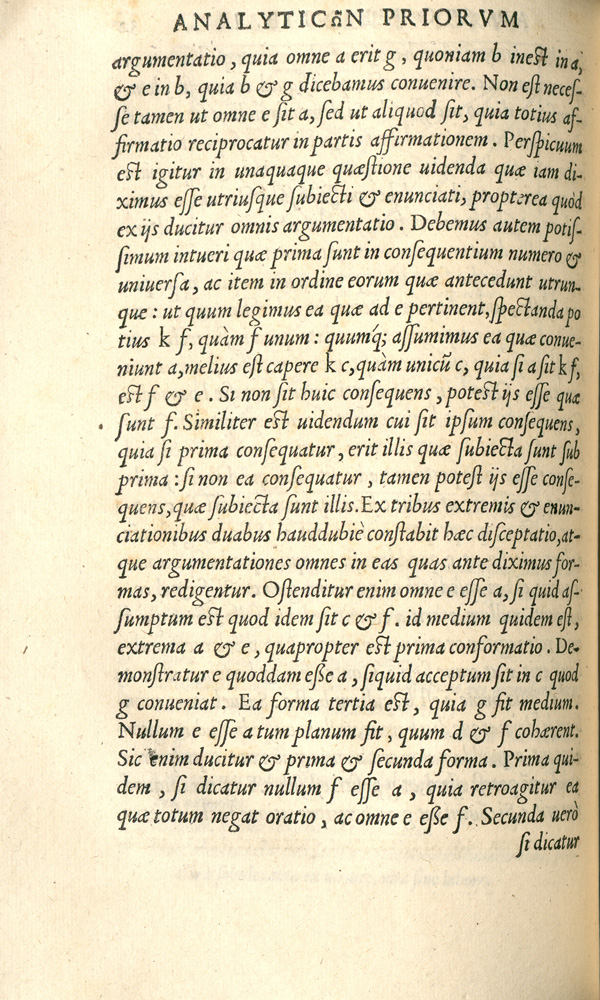 ANALYTICῶN PRIORVM
argumentatio, quia omne a erit g, quoniam b inest in a,
& e in b, quia b & g dicebamus conuenire. Non est neces-
se tamen ut omne e sit a, sed ut aliquod sit, quia totius af-
firmatio reciprocatur in partis affirmationem. Perspicuum
est igitur in unaquaque quæstione uidenda quæ iam di-
ximus esse utriusque subiecti & enunciati, propterea quòd
ex ijs ducitur omnis argumentatio. Debemus autem potis-
simum intueri quæ prima sunt in consequentium numero &
uniuersa, ac item in ordine eorum quæ antecedunt utrun-
que: ut quum legimus ea quæ ad e pertinent, spectanda po
tius k f, quàm f unum: quumq́; assumimus ea quæ conue-
niunt a, melius est capere k c, quàm unicũ c, quia si a sit k f,
est f & e. Si non sit huic consequens, potest ijs esse quæ
sunt f. Similiter est uidendum cui sit ipsum consequens,
quia si prima consequatur, erit illis quæ subiecta sunt sub
prima: si non ea consequatur, tamen potest ijs esse conse-
quens, quæ subiecta sunt illis. Ex tribus extremis & enun-
ciationibus duabus hauddubiè constabit hæc disceptatio, at-
que argumentationes omnes in eas quas ante diximus for-
mas, redigentur. Ostenditur enim omne e esse a, si quid as-
sumptum est quod idem sit c & f. id medium quidem est,
extrema a & e, quapropter est prima conformatio. De-
monstratur e quoddam esse a, siquid acceptum sit in c quod
g conueniat. Ea forma tertia est, quia g fit medium.
Nullum e esse a tum planum fit, quum d & f cohærent.
Sic enim ducitur & prima & secunda forma. Prima qui-
dem, si dicatur nullum f esse a, quia retroagitur ea
quæ totum negat oratio, ac omne e esse f. Secunda uerò
si dicatur